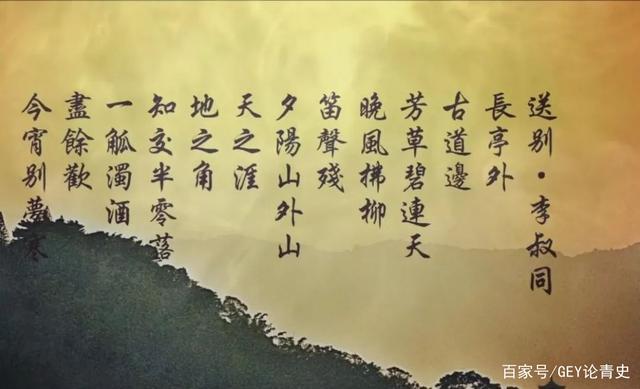 送别·李叔同
長亭外
古道邊
芳草碧連天
晚風拂柳
笛聲殘
夕陽山外山
天之涯
地之角
知交半零落
一觚濁酒
盡餘歡
今宵别夢寒
百家号/GEY论青史